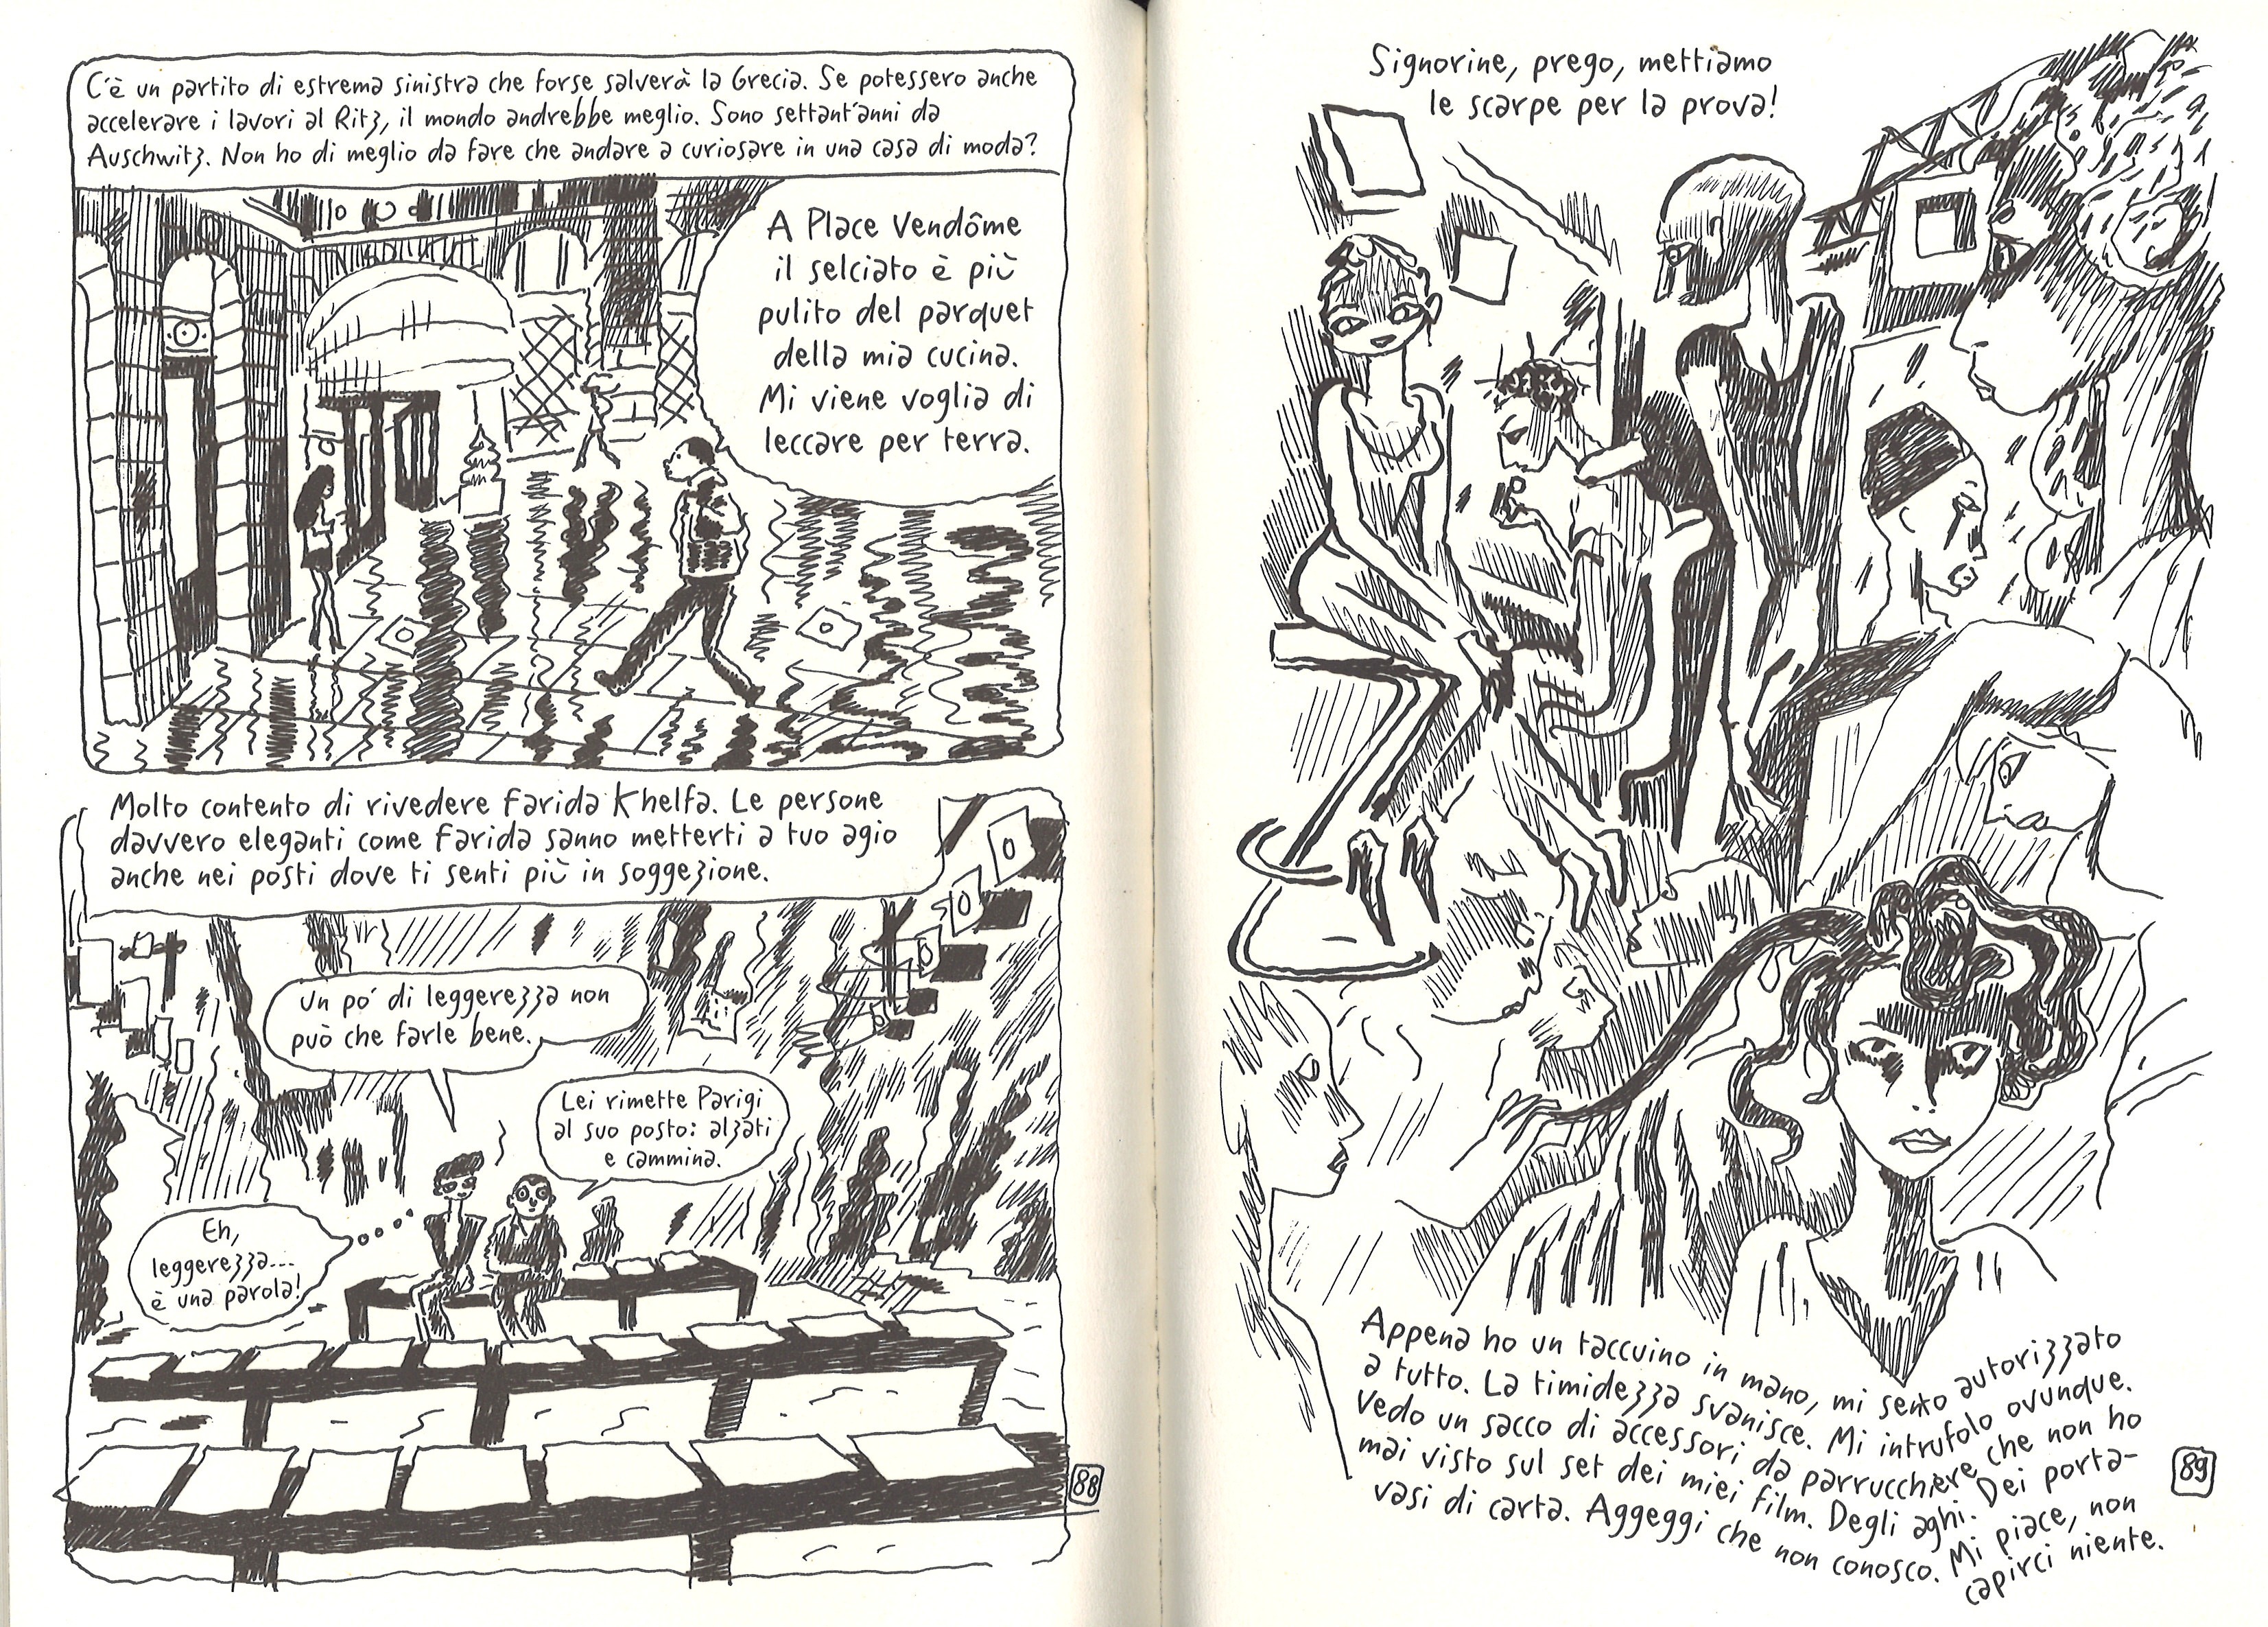 C'è un partito di estrema sinistra che forse salverà la Grecia. Se potessero anche
accelerare i lavori al Ritz, il mondo andrebbe meglio. Sono settant'anni da
Auschwitz. Non ho di meglio da fare che andare a curiosare in una casa di moda?
A Place Vendôme
il selciato è più
pulito del parquet
della mia cucina.
Mi viene voglia di
leccare per terra.
Molto contento di rivedere Farida Khelfa. Le persone
davvero eleganti come Farida sanno metterti a tuo agio
anche nei posti dove ti senti più in soggezione.
Un po' di leggerezza non
può che farle bene.
Lei rimette Parigi
al suo posto: alzati
e cammina.
Eh,
leggerezza...
è una parola!
88
Signorine, prego, mettiamo
le scarpe per la prova!
Appena ho un taccuino in mano, mi sento autorizzato
a tutto. La timidezza svanisce. Mi intrufolo ovunque.
Vedo un sacco di accessori da parrucchiere che non ho
mai visto sul set dei miei film. Degli aghi. Dei porta-
vasi di carta. Aggeggi che non conosco. Mi piace, non
capirci niente.
89